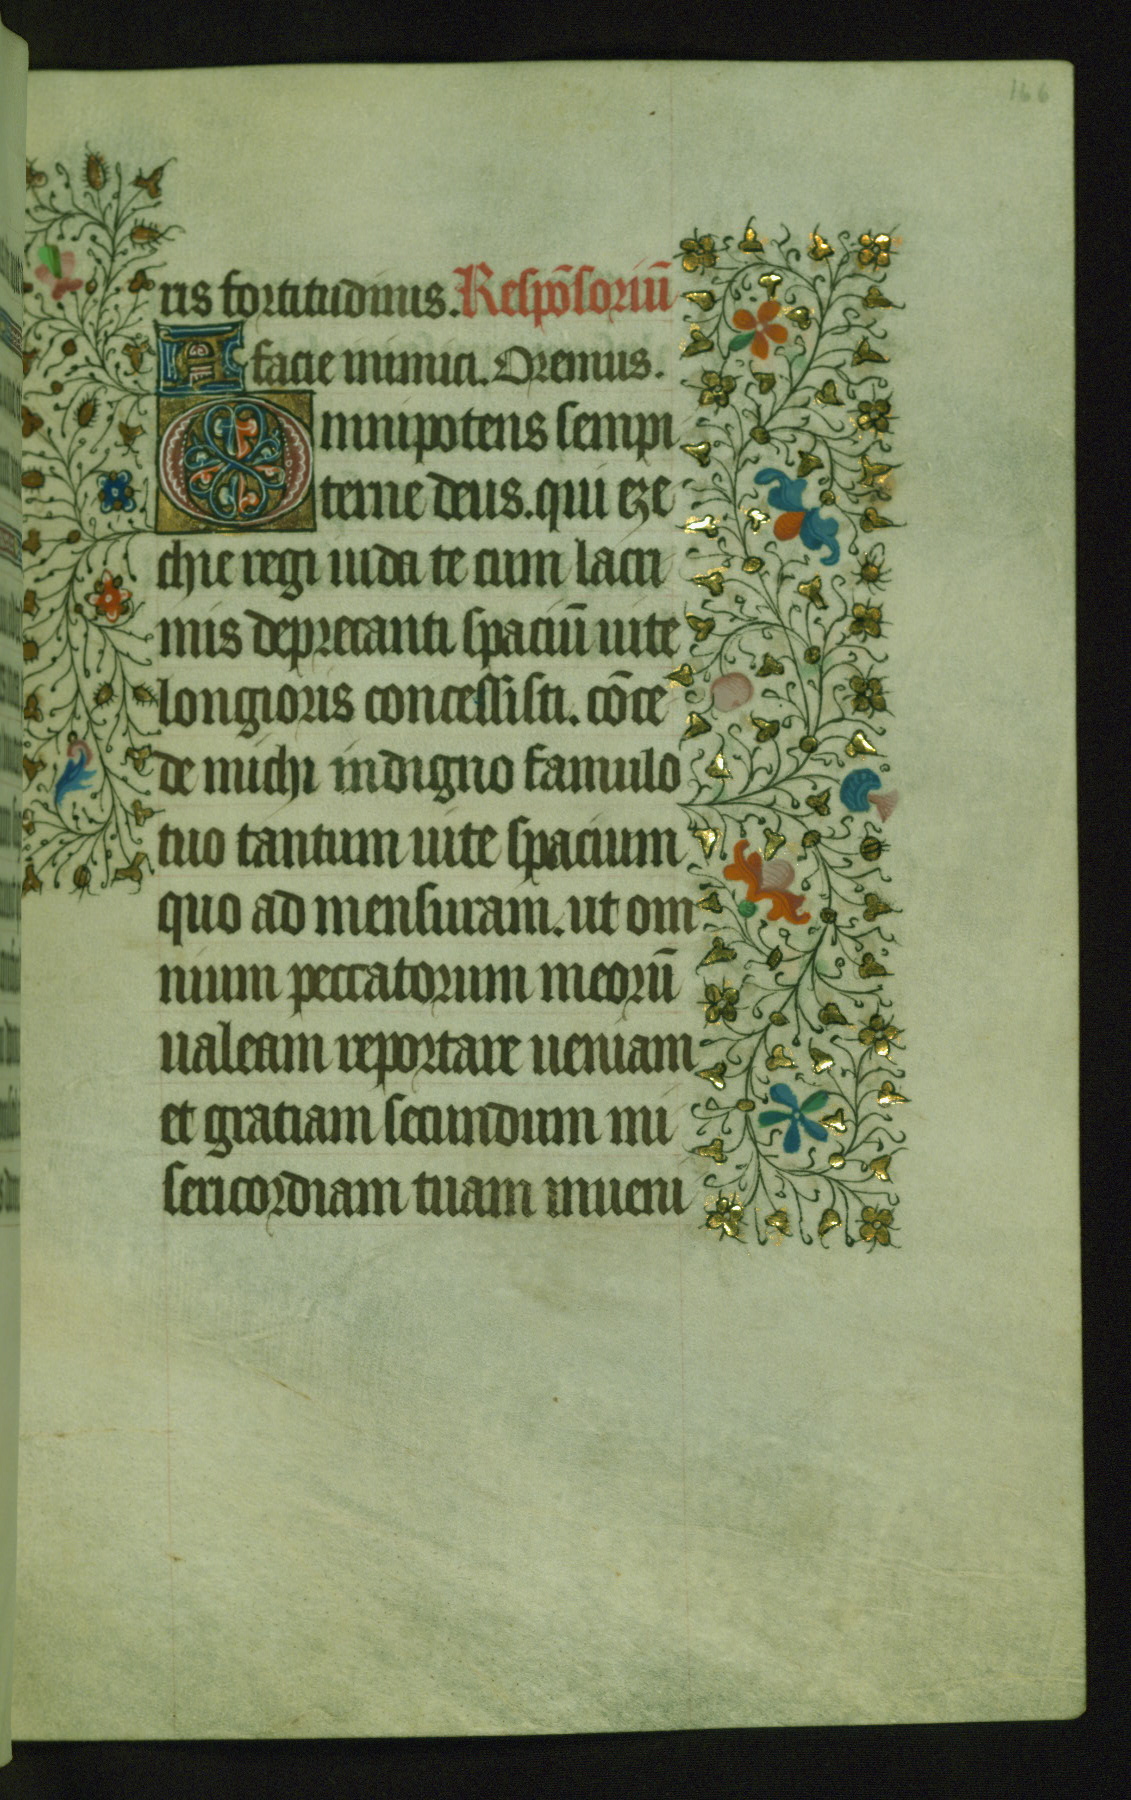 166
ris fortitudinus. Respōsoriū
A facie inimici. Oremus.
Omnipotens sempi
terne deus. qui eze
chie regi iuda te cum lacri
mis deprecanti spaciū uite
longioris concessisti. cōce
de michi indigno famulo
tuo tantum uite spacium
quo ad mensuram. ut om
nium peccatorum meorū
ualeam reportare ueniam
et gratiam secundum mi
sericordiam tuam inueni